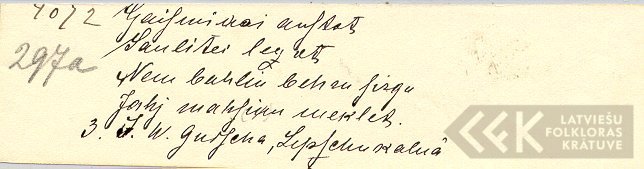 4072 Gaismiņai austot
297a Saulitei lezot
Nem bahliņ behru sirgu
Jahj mahsiņu meklet.
3. J. W. Gulscha, Lepschukalnā
LFK LATVIEŠU FOLKLORAS KRĀTUVE